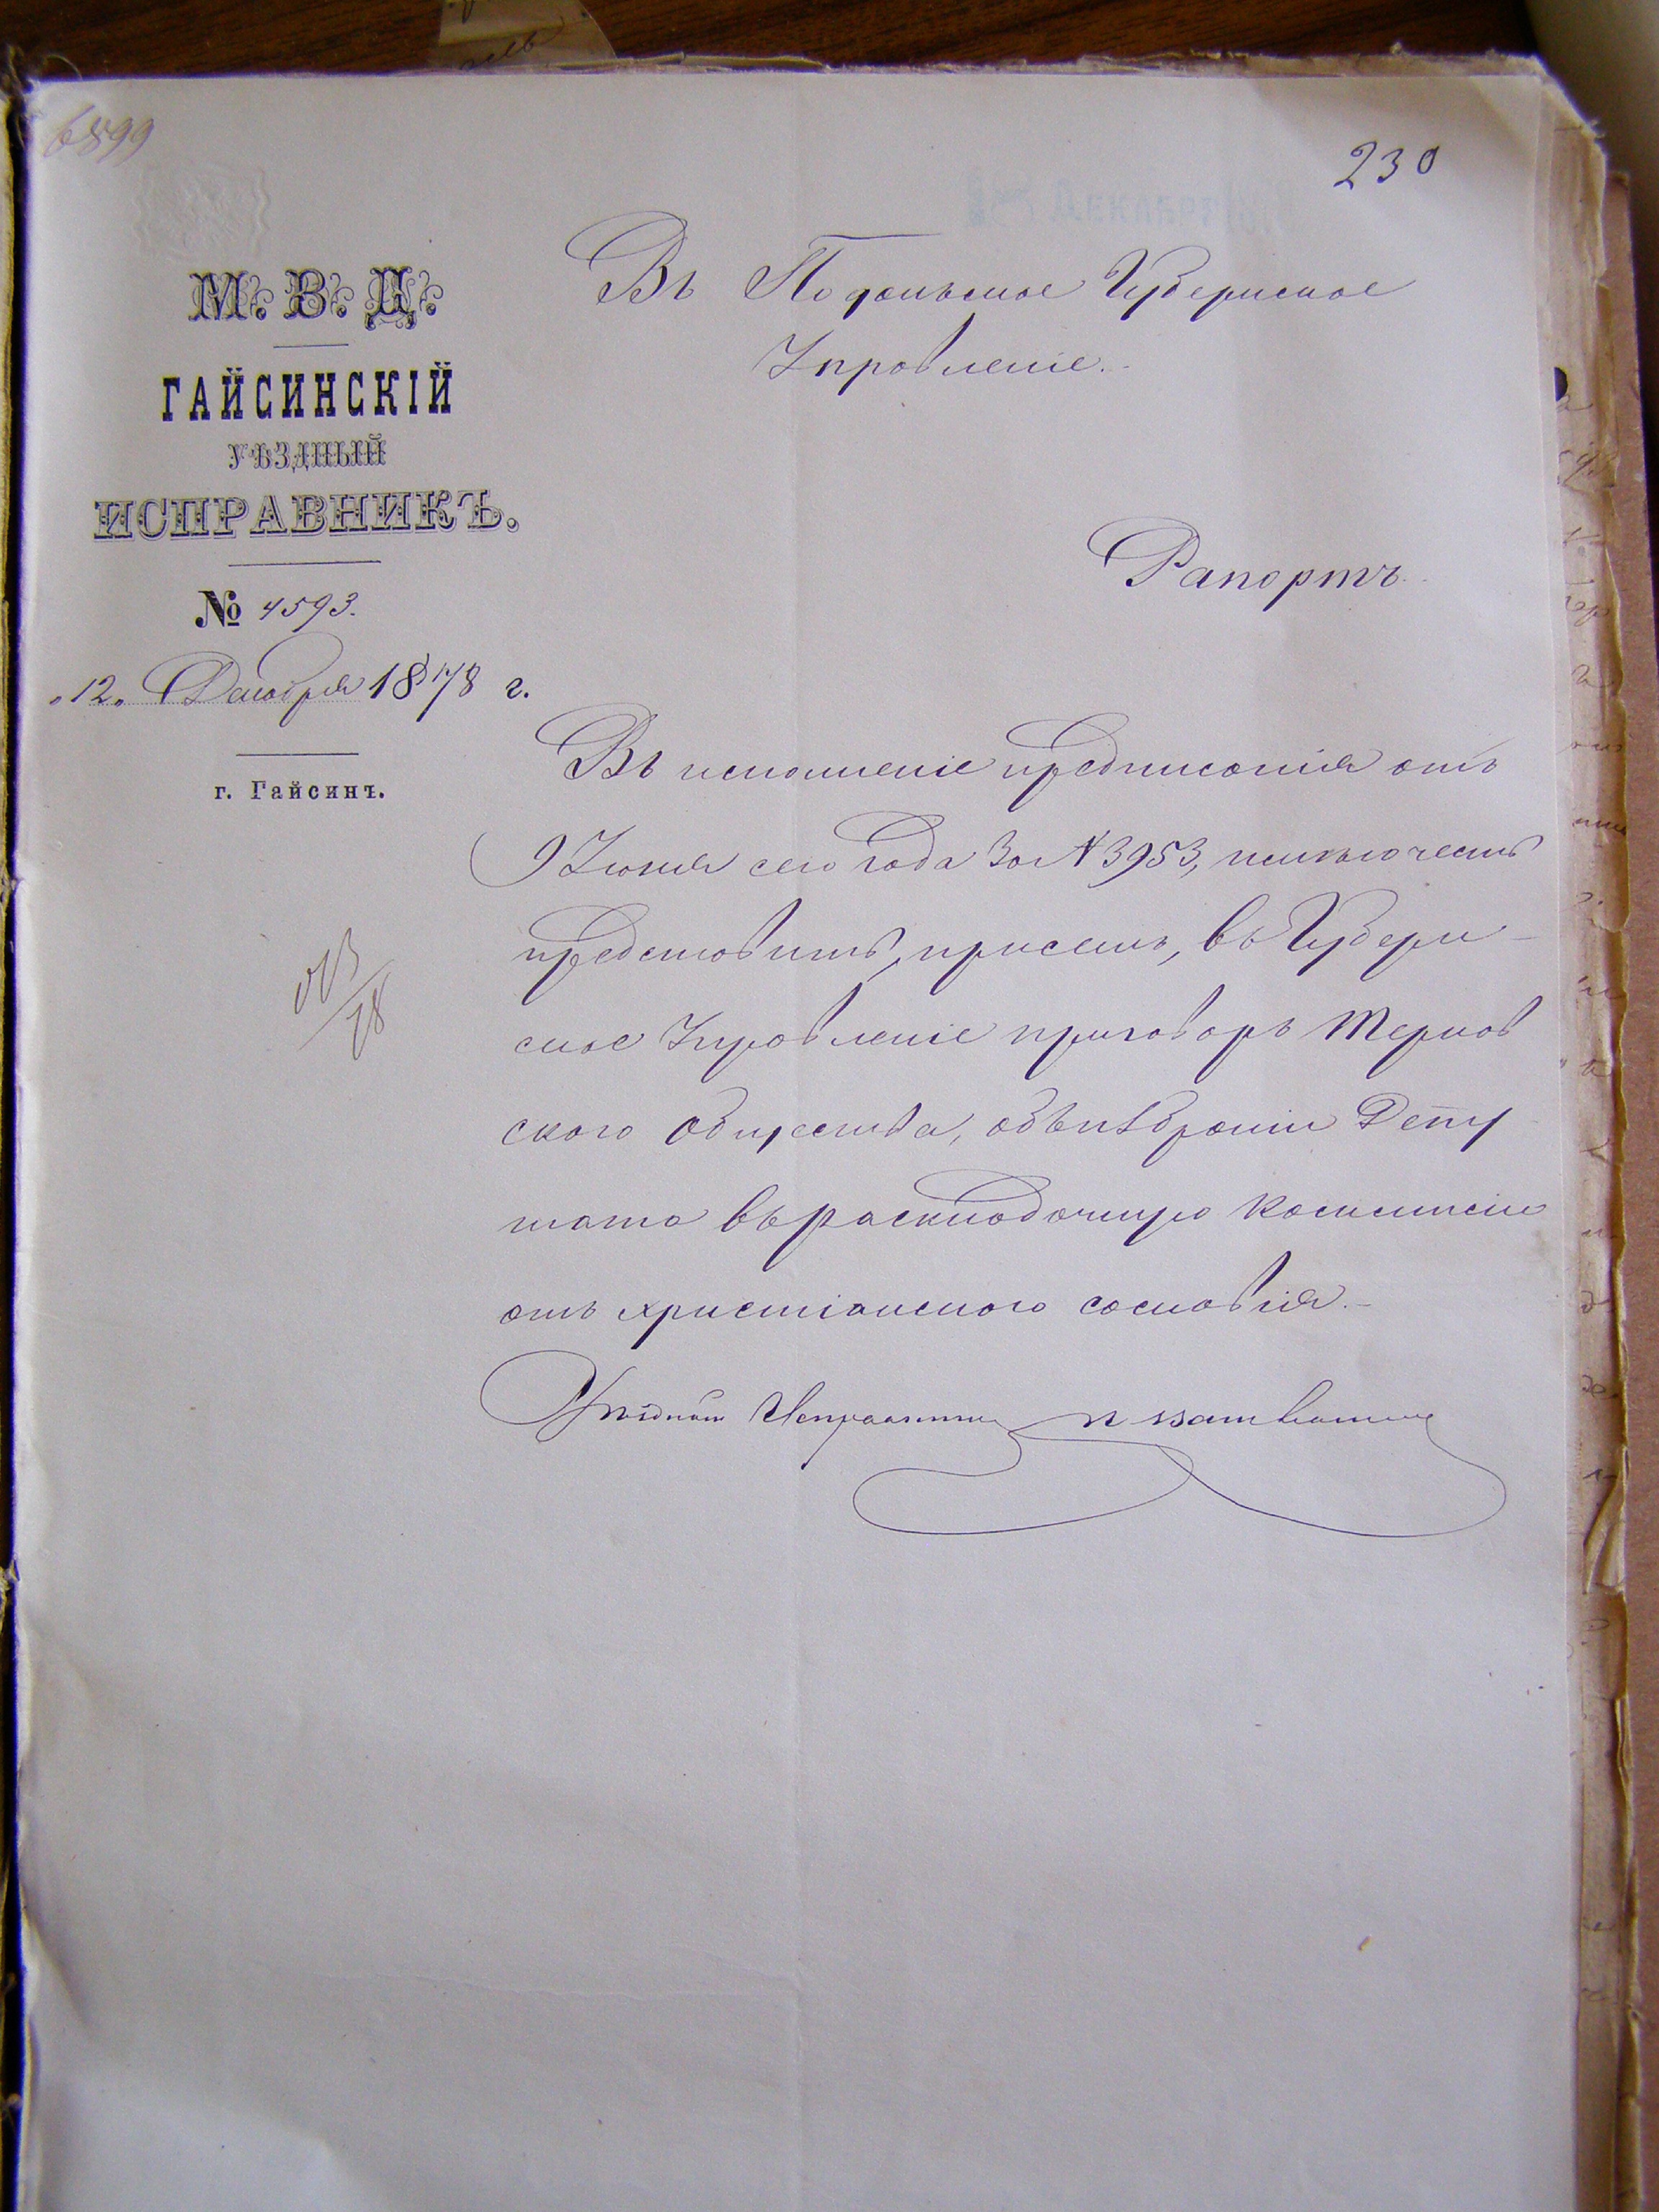 6899
230
ДЕКАБРЯ
М. В. Д.
ГАЙСИНСКІЙ
УѢЗДНЫЙ
ИСПРАВНИКЪ.
№ 4593.
„12„ Декабря 1878 г.
г. Гайсинъ.
Въ Подольское Губернское
Управленіе.
Рапортъ
Въ исполненіе предписанія отъ
9 Іюня сего года за № 3953, имѣю честь
представить, присемъ, въ Губерн-
ское Управленіе приговоръ Тернов
ского Общества, объ избраніи Депу
тата въ раскладочную Коммисію
отъ христіанского сословія.
Уѣздный Исправникъ